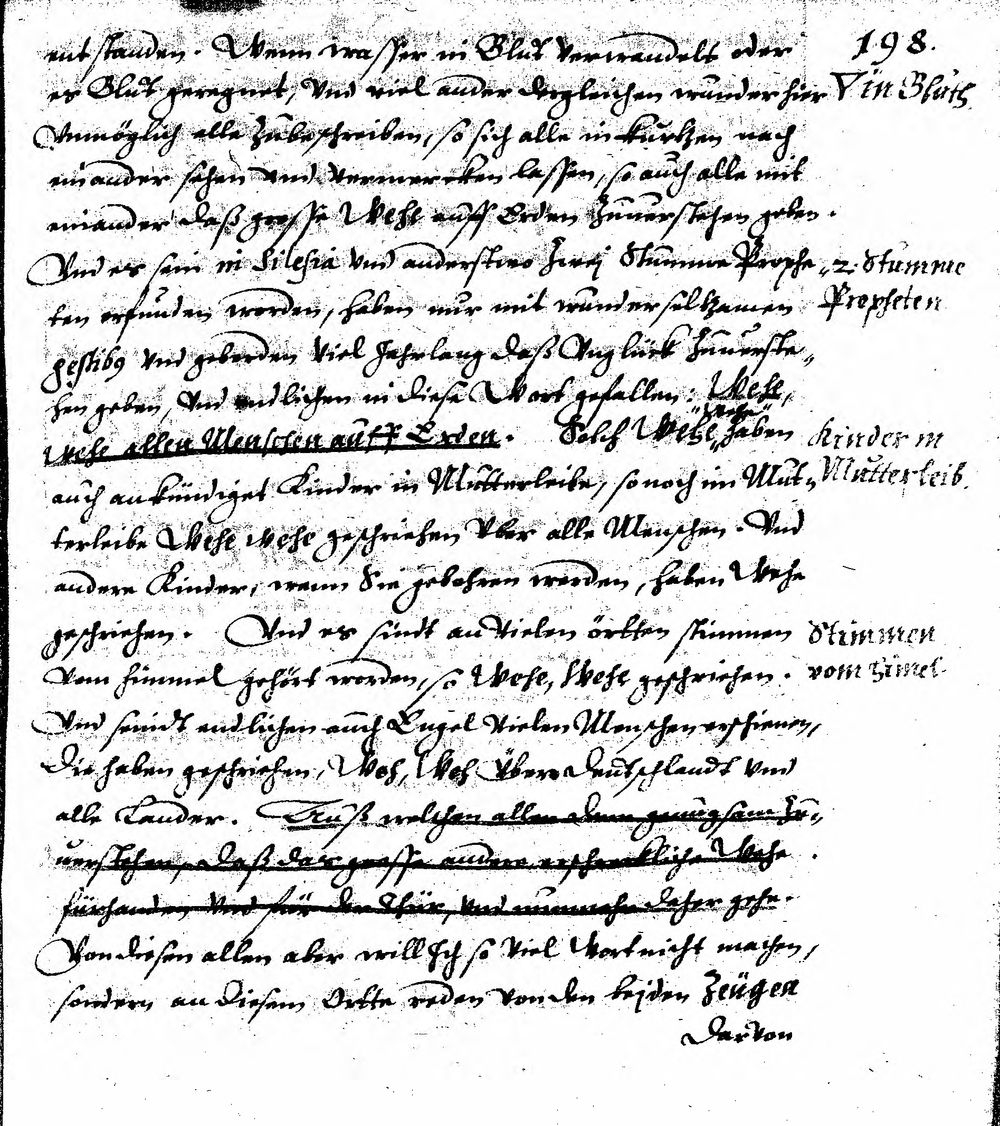 198.
entstanden. Wenn wasser in Blut verwandelt oder
es Blut geregnet, Und viel ander dergleichen wunder hier
Vin Bluth
Vnmöglich alle Zubeschreiben, so sich alle in kurtzen nach
einander sehen und vermercken lassen, so auch alle mit
einander daß grosse Wehe auff Erden Zuuerstehen geben.
Und es sein in Silesia und anderstwo Zwej Stumme Prophe„
2. Stumme
ten erfunden worden, haben nur mit wunderseltzamen
Propheten
gestibus und geberden viel Jahrlang daß Unglück Zuuerste„
hen geben, Und endlichen in diese Wort gefallen: Wehe,
wehe allen Menschen auff Erden. Solch Wehe, wehe haben
Kinder in
auch ankündiget Kinder in Mutterleibe, so noch im Mut„
Mutterleib.
terleibe Wehe wehe geschriehen Uber alle Menschen. Und
andere Kinder, wenn Sie gebohren worden, haben Wehe
geschriehen. Und es sindt an vielen örtten stimmen
Stimmen
vom himmel gehört worden, so Wehe, Wehe geschriehen.
vom Himel
Und seindt endlichen auch Engel vielen Menschen erschienen,
Die haben geschriehen, Weh, Weh Über Deutschlandt und
alle Länder. Auß welchen allen denn genugsam Zu„
uerstehen, Daß das grosse andere erschreckliche Wehe
fürhanden und für der Thür, und nunmehr daher gehe.
Von diesen allen aber will Ich so viel Wort nicht machen,
sondern an diesem Ortte reden von den beijden Zeügen
Darvon